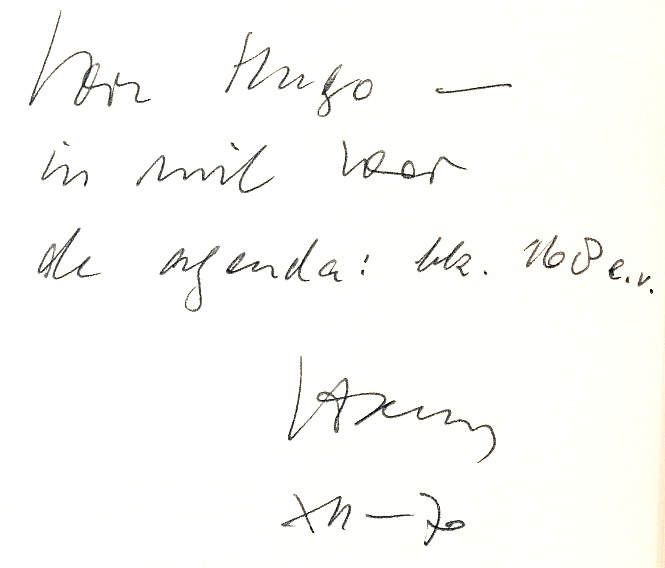 Voor Hugo —
in ruil voor
de agenda: blz. 168 e.v.
Harry
XII – 70